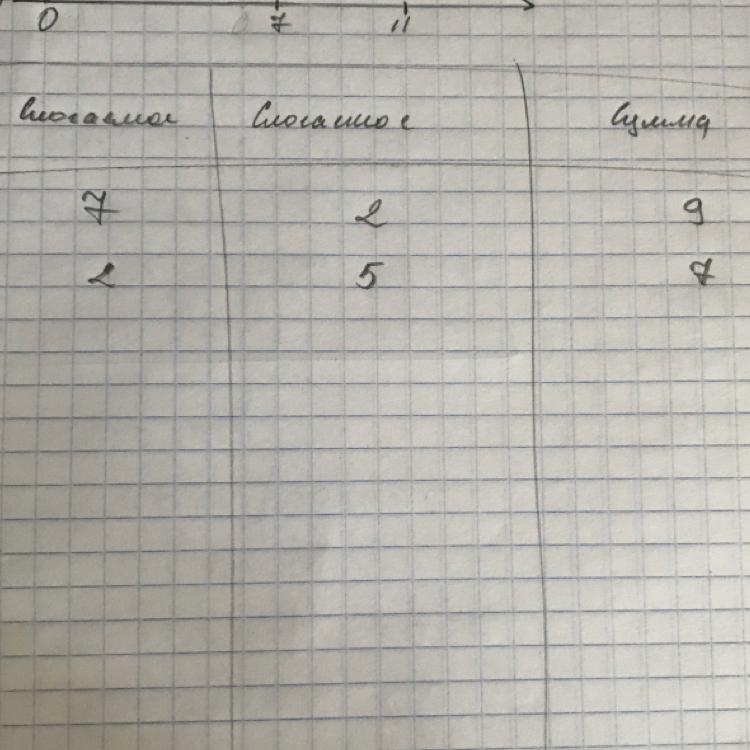 0 7 11
Слогаемое Слогаемое Сумма
7 2 9
2 5 7